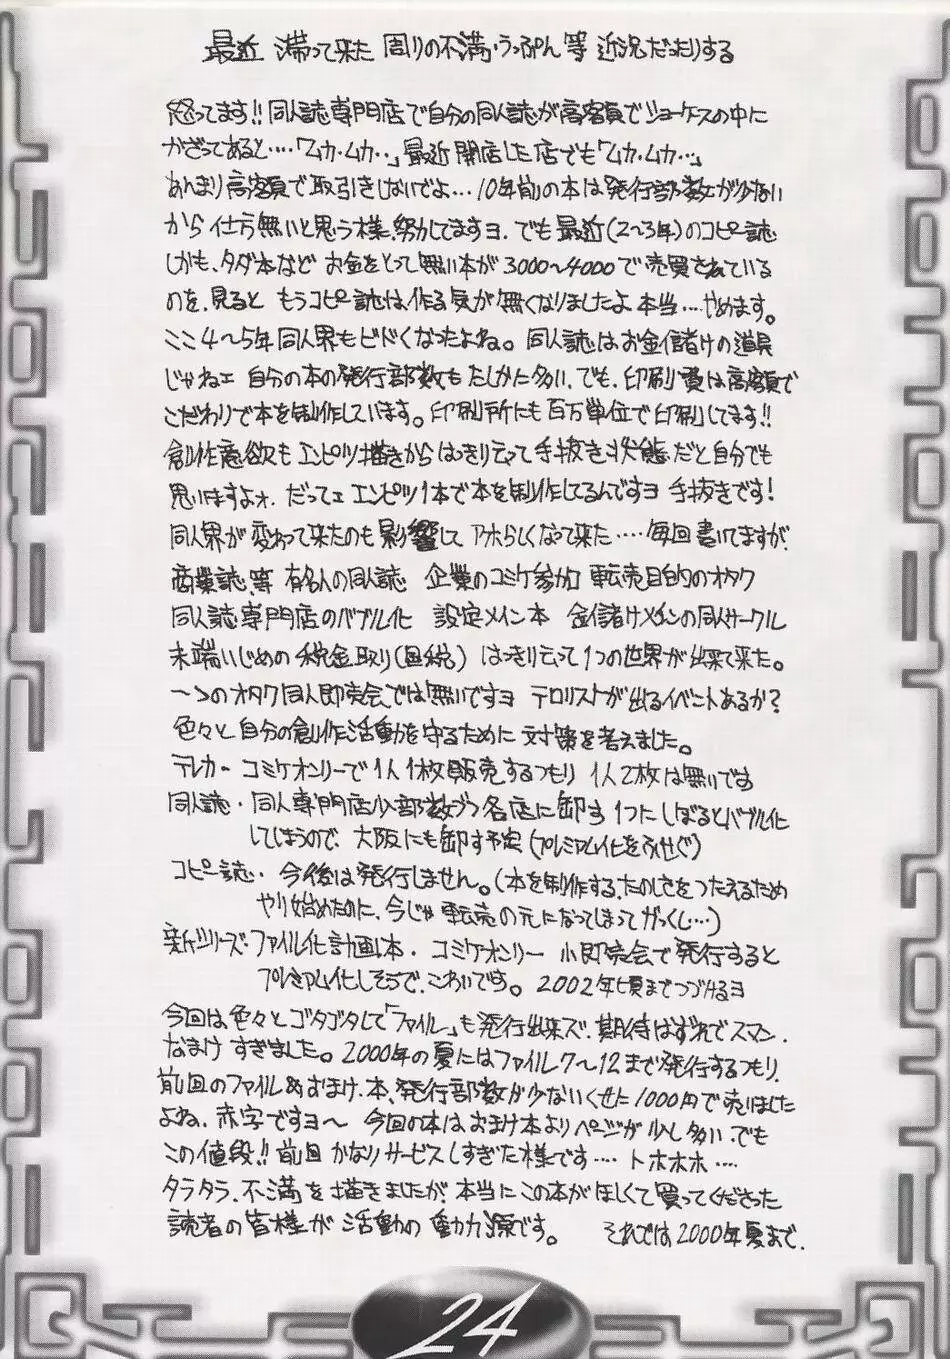 最近 滞って来た 周りの不満・うっぷん等 近況だったりする
怒ってます!! 同人誌専門店で自分の同人誌が高額でショーケースの中に
かざってあると‥‥「ムカ・ムカ‥」最近開店した店でも「ムカ・ムカ‥」
あんまり高額で取引きしないでよ‥‥10年前の本は発行部数が少ない
から仕方無いと思う様、努力してますヨ. でも最近(2〜3年)のコピー誌
しかも、タダ本など お金をとって無い本が3000〜4000で売買されている
のを、見ると もうコピー誌は、作る気が無くなりましたよ 本当‥‥やめます。
ここ4〜5年同人界もヒドくなったよね。同人誌はお金儲けの道具
じゃねェ 自分の本の発行部数もたしかに多い、でも、印刷費は高額で
こだわりで本を制作しています。印刷所にも百万単位で印刷してます!!
創作意欲も エンピツ描きから はっきり云って手抜き状態だと自分でも
思いますよォ. だってェ エンピツ1本で本を制作してるんですヨ 手抜きです!
同人界が変わって来たのも影響して アホらしくなって来た‥‥‥毎回書いてますが、
商業誌、等 有名人の同人誌 企業のコミケ参加 転売目的のオタク
同人誌専門店のバブル化 設定メイン本 金儲けメインの同人サークル
末端いじめの税金取り(国税) はっきり云って1つの世界が出来て来た。
一つのオタク同人即売会では無いですヨ テロリストが出るイベントあるか?
色々と自分の創作活動を守るために対策を考えました。
テレカー コミケオンリーで1人1枚販売するつもり 1人2枚は無しです
同人誌・同人専門店少部数づつ各店に卸す 1つにしぼるとバブル化
してしまうので、大阪にも卸す予定(プレミアム化をふせぐ)
コピー誌・今後は発行しません。(本を制作する、たのしさをつたえるため
やり始めたのに、今じゃ転売の元になってしまってがっくし‥‥)
新シリーズ・ファイル化計画本・コミケオンリー 小即売会で発行すると
プレミアム化しそうで、こわいです。2002年頃までつづけるヨ
今回は色々とゴタゴタして「ファイル」も発行出来ズ、期待はずれでスマン.
なまけすぎました。2000年の夏にはファイル7〜12まで発行するつもり.
前回のファイル&おまけ.本、発行部数が少ないくせに1000円で売りました
よね. 赤字ですヨ〜 今回の本はおまけ本よりページが少し多い、でも
この値段!! 前回かなりサービスしすぎた様です‥‥トホホホ‥‥
タラタラ、不満を描きましたが、本当にこの本がほしくて買ってくださった
読者の皆様が活動の動力源です。 それでは2000年夏まで.
24